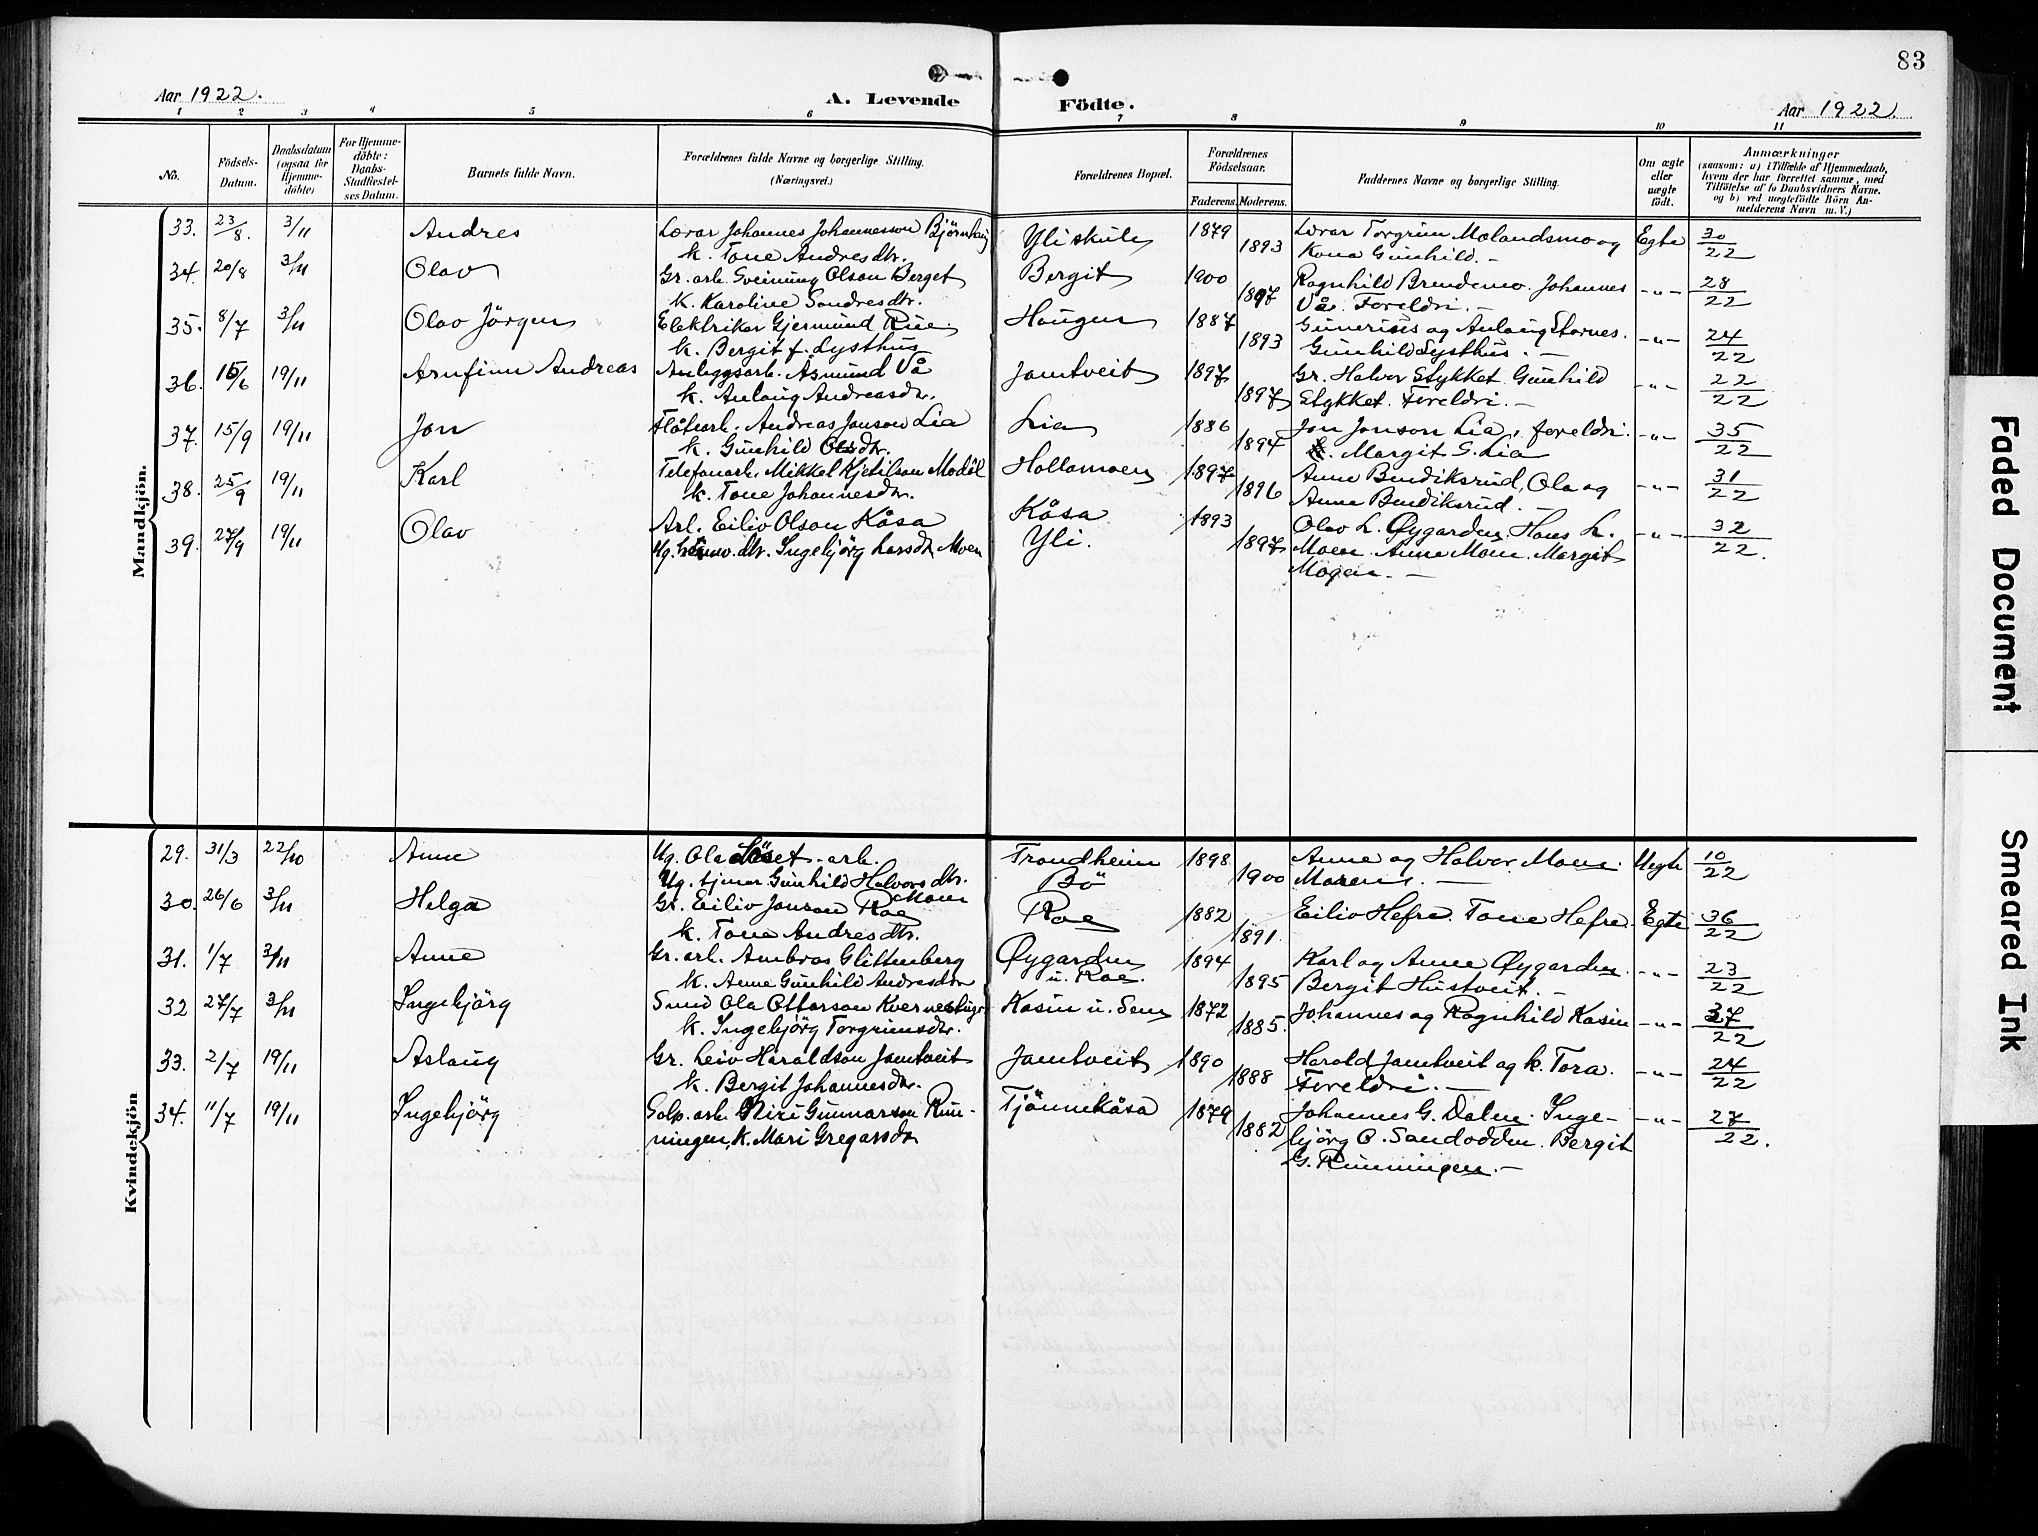 83
Aar 1922.
A. Levende
Födte.
Aar 1922.
1 2 3 4 5 6 7 8 9 10 11
No.
Födsels-
Datum.
Daabsdatum
(ogsaa för
Hjemme-
döbte)
For Hjemme-
döbte:
Daabs-
Stadfæstel-
ses Datum.
Barnets fulde Navn.
Forældrenes fulde Navne og borgerlige Stilling.
(Næringsvei.)
Forældrenes Bopæl.
Forældrenes
Födselsaar.
Faderens. Moderens.
Faddernes Navne og borgerlige Stilling.
Om ægte
eller
uægte
födt.
Anmærkninger
(saasom: a) i Tilfælde af Hjemmedaab,
hvem der har forrettet samme, med
Tilföielse af to Daabsvidners Navne,
og b) ved uægtefödte Börn An-
melderens Navn m. V.)
Mandkjön.
33. 23/8. 3/11 Andres Lærar Johannes Johannesson Bjørnhaug Yli skule 1879 Lærar Torgrim Molandsmo og Egte 30/22
k. Tone Andresdtr. 1893 Kona Gunhild. -
34. 20/8 3/11 Olav Gr. arb. Sveinung Olson Berget Bergit 1900 Ragnhild Brendemo. Johannes -"- 28/22
k. Karoline Sondresdtr. 1897 Vå. Foreldri. -
35. 8/7 3/11 Olav Jörgen Elektriker Gjermund Rue. Haugen 1887 og Aslaug Stornes. -"- 24/22
k. Bergit f. Lysthus 1893 Gunhild Lysthus. -
36. 15/6 19/11 Arnfinn Andreas Anleggsarb. Asmund Vå Jamtveit 1897 Gr. Halvor Stykket Gunhild -"- 22/22
k. Aslaug Andreasdtr. 1897 Stykket. Foreldri. -
37. 15/9 19/11 Jon Flötarb. Andreas Jonson Lia Lia 1886 Jon Jonson Lia, foreldri. -"- 35/22
k. Gunhild Olsdtr. 1894 k. Margit G. Lia
38. 25/9 19/11 Karl Telefonarb. Mikkel Kjetilson Modöl Hollamoen 1897 Anne Bendiksrud, Ola og -"- 31/22
k. Tone Johannesdtr. 1896 Anne Bendiksrud. -
39. 27/9 19/11 Olav Arb. Eiliv Olson Kåsa Kåsa 1893 Olav L. Øygarden. Hans L. -"- 32/22.
Ug. dtr. Ingebjörg Larsdtr Moen Yli. 1897 Moen. Anne Moen. Margit
Mogen. -
Kvindekjön
29. 31/3 22/10 Anne Ug. Ola arb. Trondheim 1898 Anne og Halvor Moen. Uegte 10/22
Ug. tjener Gunhild Halvorsdtr. Bö 1900 Maren. -
Moen
30. 26/6 3/11 Helga Gr. Eiliv Jonson Roe Roe 1882 Eiliv Hefre. Tone Hefre. Egte 36/22
k. Tone Andresdtr. 1891.
31. 1/7 3/11 Anne Gr. arb. Ambros Glittenberg Øygarden 1894 Karl og Anne Øygarden. -"- 23/22
k. Anne Gunhild Andresdtr u. Roe. 1895 Bergit Hustveit. -
32 27/7 3/11 Ingebjörg Smed Ola Ottarson Kasin u. Sem 1872 Johannes og Ragnhild Kasin -"- 37/22
k. Ingebjörg Torgrimsdtr. 1885.
33. 2/7 19/11 Aslaug Gr. Leiv Haraldson Jamtveit Jamtveit 1890 Harald Jamtveit og k. Tora. -"- 24/22
k. Bergit Johannesdtr. 1888 Foreldri. -
34. 11/7 19/11 Ingebjörg Golp. arb. Niri Gunnarson Run- Tjönnekåsa 1879 Johannes G. Dalen. Inge- -"- 27/22.
ningen, k. Mari Gregarsdtr 1882 björg O. Sandodden. Bergit
G. Runningen. -
Faded Document
Smeared Ink